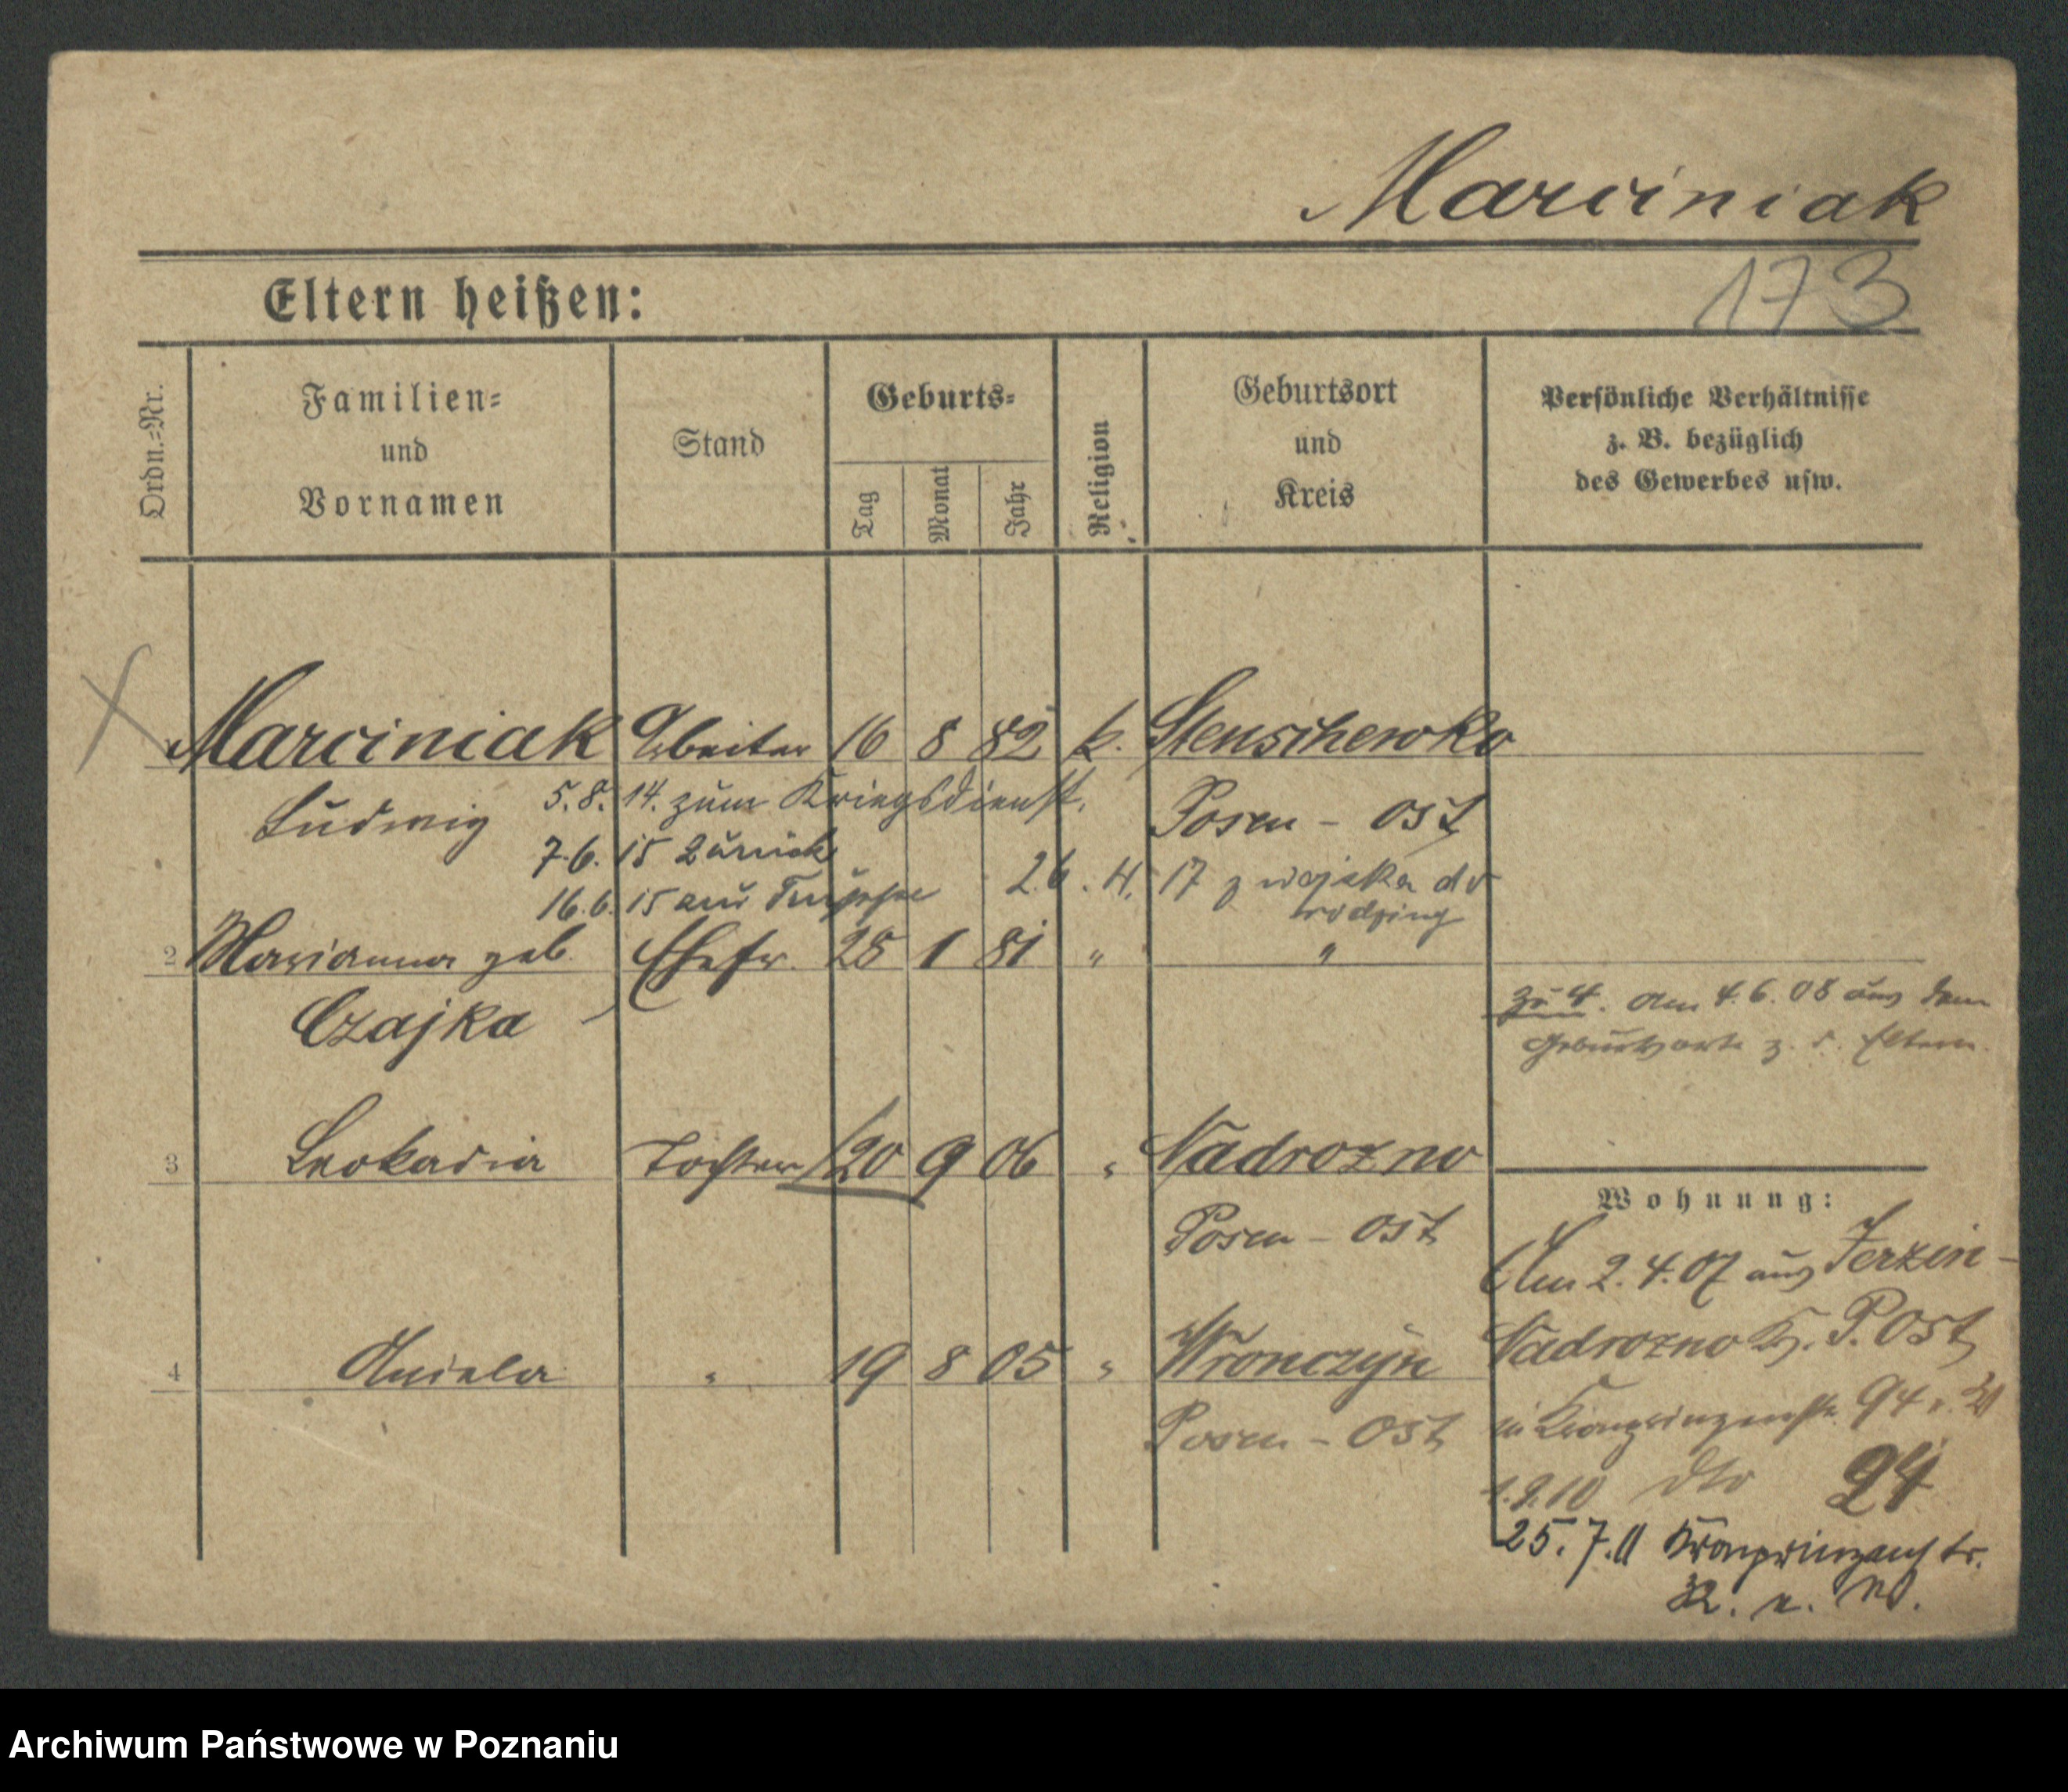 Marciniak
Eltern heißen:
173
Ordn.=Nr.
Familien=
und
Vornamen
Stand
Geburts=
Tag
Monat
Jahr
Religion
Geburtsort
und
Kreis
Persönliche Verhältnisse
z. B. bezüglich
des Gewerbes usw.
1 Marciniak Arbeiter 16 8 82 k. Stenschewko
Ludwig 5.8.14. zum Kriegsdienst. Posen - Ost
7.6.15 zurück
16.6.15 zur Truppe 26.11.17 z wojska do
rodziny
2 Marianna geb. Ehefr. 28 1 81 " "
Czajka
zu 4. am 4.6.08 aus dem
Geburtsorte z. d. Eltern.
3 Leokadia Tochter 20 9 06 " Nadrozno
Posen - Ost
Wohnung:
Am 2.4.07 aus Jerzin-
Nadrozno Kr. P. Ost
in Kronprinzenstr. 94
4 Aniela " 19 8 05 " Wronczyn
Posen - Ost
1.9.10 dto 94
25.7.11 Kronprinzenstr.